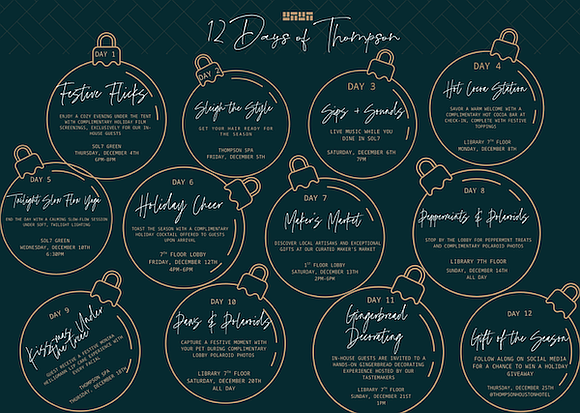 12 Days of Thompson
DAY 1
Festive Flicks
ENJOY A COZY EVENING UNDER THE TENT
WITH COMPLIMENTARY HOLIDAY FILM
SCREENINGS, EXCLUSIVELY FOR OUR IN-
HOUSE GUESTS
SOL7 GREEN
THURSDAY, DECEMBER 4TH
6PM-8PM
DAY 2
Sleigh the Style
GET YOUR HAIR READY FOR
THE SEASON
THOMPSON SPA
FRIDAY, DECEMBER 5TH
DAY 3
Sips + Sounds
LIVE MUSIC WHILE YOU
DINE IN SOL7
SATURDAY, DECEMBER 6TH
7PM
DAY 4
Hot Cocoa Station
SAVOR A WARM WELCOME WITH A
COMPLIMENTARY HOT COCOA BAR AT
CHECK-IN, COMPLETE WITH FESTIVE
TOPPINGS
LIBRARY 7TH FLOOR
MONDAY, DECEMBER 8TH
DAY 5
Twilight Slow Flow Yoga
END THE DAY WITH A CALMING SLOW-FLOW SESSION
UNDER SOFT, TWILIGHT LIGHTING
SOL7 GREEN
WEDNESDAY, DECEMBER 10TH
6:30PM
DAY 6
Holiday Cheer
TOAST THE SEASON WITH A COMPLIMENTARY
HOLIDAY COCKTAIL OFFERED TO GUESTS
UPON ARRIVAL
7TH FLOOR LOBBY
FRIDAY, DECEMBER 12TH
4PM-6PM
DAY 7
Maker's Market
DISCOVER LOCAL ARTISANS AND EXCEPTIONAL
GIFTS AT OUR CURATED MAKER'S MARKET
1ST FLOOR LOBBY
SATURDAY, DECEMBER 13TH
2PM-6PM
DAY 8
Peppermints & Polaroids
STOP BY THE LOBBY FOR PEPPERMINT TREATS
AND COMPLIMENTARY POLAROID PHOTOS
LIBRARY 7TH FLOOR
SUNDAY, DECEMBER 14TH
ALL DAY
DAY 9
Kiss-mas Under
the Tree
GUEST RECEIVE A FESTIVE MONIKA
HEILIGMANN LIP CARE EXPERIENCE WITH
EVERY FACIAL
THOMPSON SPA
THURSDAY, DECEMBER 18TH
DAY 10
Paws & Polaroids
CAPTURE A FESTIVE MOMENT WITH
YOUR PET DURING COMPLIMENTARY
LOBBY POLAROID PHOTOS
LIBRARY 7TH FLOOR
SATURDAY, DECEMBER 20TH
ALL DAY
DAY 11
Gingerbread
Decorating
IN-HOUSE GUESTS ARE INVITED TO A
HANDS-ON GINGERBREAD DECORATING
EXPERIENCE HOSTED BY OUR
TASTEMAKERS
LIBRARY 7TH FLOOR
SUNDAY, DECEMBER 21ST
1PM
DAY 12
Gift of the Season
FOLLOW ALONG ON SOCIAL MEDIA
FOR A CHANCE TO WIN A HOLIDAY
GIVEAWAY
THURSDAY, DECEMBER 25TH
@THOMPSONHOUSTONHOTEL